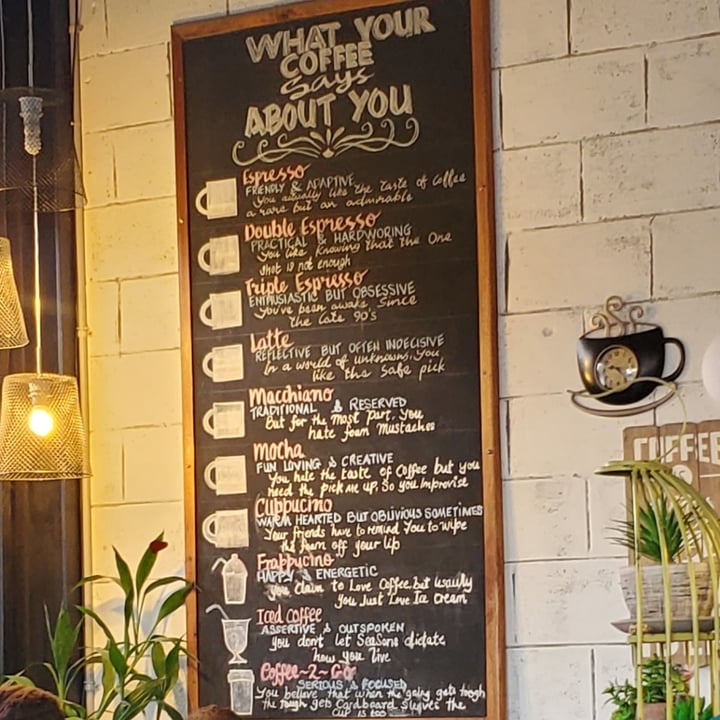 WHAT YOUR
COFFEE
says
ABOUT YOU
Espresso
FRIENDLY & ADAPTIVE
You actually like the taste of coffee
a rare but an admirable
Double Espresso
PRACTICAL & HARDWORING
You like knowing that the One
shot is not enough
Triple Espresso
ENTHUSIASTIC BUT OBSESSIVE
You've been awake since
the late 90's
Latte
REFLECTIVE BUT OFTEN INDECISIVE
In a world of unknowns, You
like the safe pick
Macchiano
TRADITIONAL & RESERVED
But for the most part, you
hate foam Mustaches
Mocha
FUN LOVING & CREATIVE
You hate the taste of coffee but you
need the pick me up, so you improvise
Cuppucino
WARM HEARTED BUT OBLIVIOUS SOMETIMES
Your friends have to remind you to wipe
the foam off your lip
Frappycino
HAPPY & ENERGETIC
you claim to Love Coffee, but usaully
you Just Love Ice cream
Iced Coffee
ASSERTIVE & OUTSPOKEN
you don't let Seasons dictate
how you live
Coffee~2~Go
SERIOUS & FOCUSED
You believe that when the going gets tough
the tough gets Cardboard the
Cup is too
COFFEE